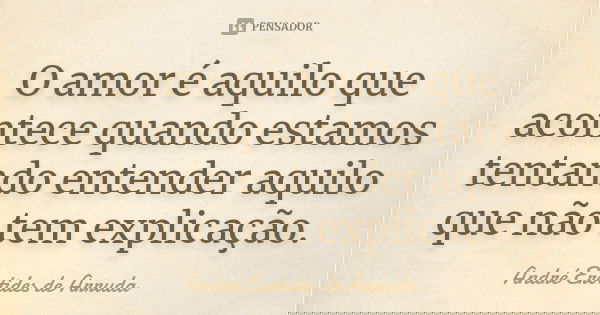 PENSADOR
O amor é aquilo que
acontece quando estamos
tentando entender aquilo
que não tem explicação.
André Erotides de Arruda